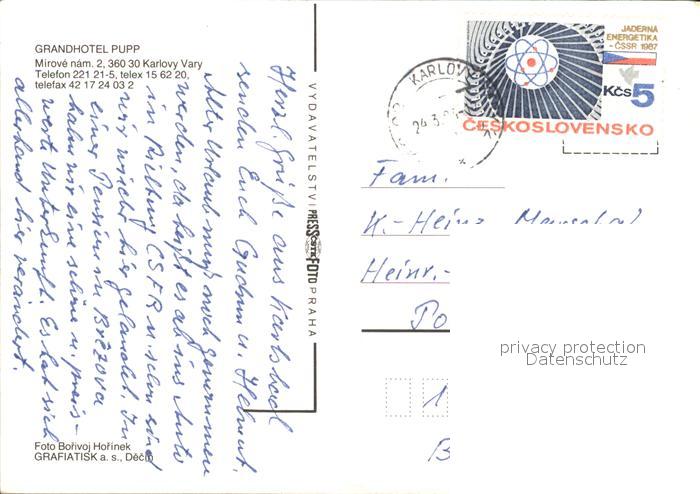 GRANDHOTEL PUPP
Mírové nám. 2, 360 30 Karlovy Vary
Telefon 221 21-5, telex 15 62 20,
telefax 42 17 24 03 2
Herzl. Grüße aus Karlsbad
senden Euch Gudrun u. Helmut.
Alter Urlaub muß noch genommen
werden, da hüpft es ab ins Auto
in Richtung ČSFR u. schon sind
wir wieder hier gelandet. In
einer Pension in Březova
haben wir eine schöne u. preis-
werte Unterkunft. Es hat sich
allerhand hier verändert.
Foto Bořivoj Hořínek
GRAFIATISK a. s., Děčín
VYDAVATELSTVÍ PRESSFOTO PRAHA
JADERNÁ
ENERGETIKA
-ČSSR 1987
Kčs 5
ČESKOSLOVENSKO
KARLOVY
24.3.
Fam.
K.-Heinz
Heinr.-
Po
1
B
privacy protection
Datenschutz